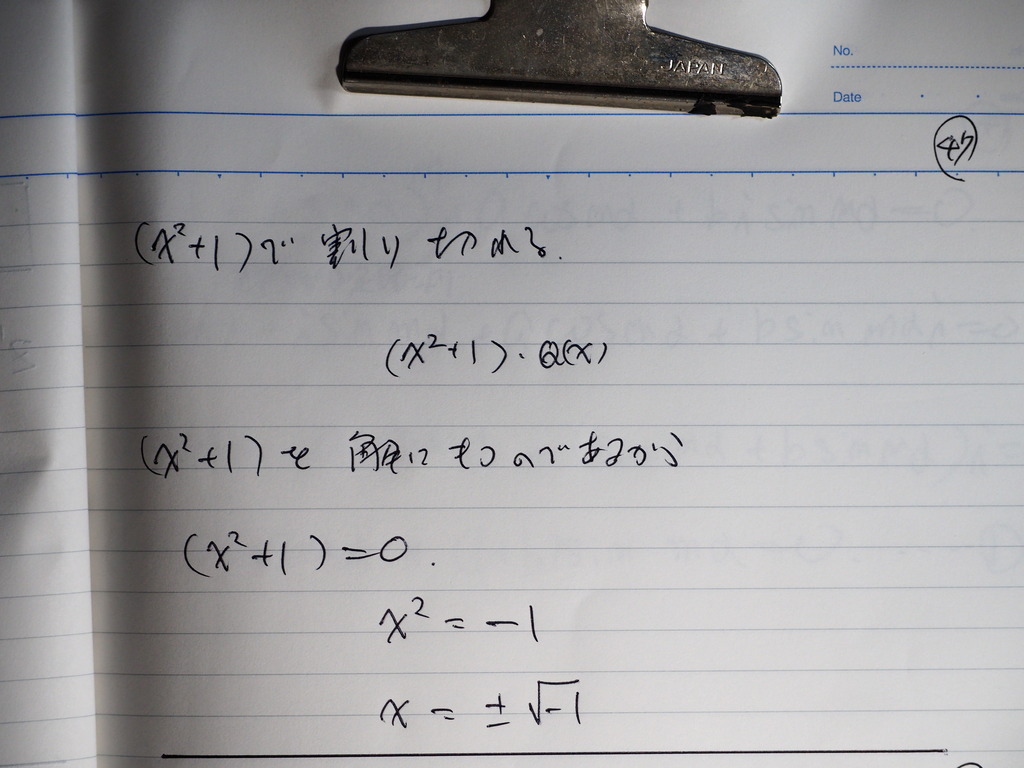 JAPAN
No.
Date
47
(x²+1)で割り切れる.
(x²+1)・Q(x)
(x²+1)を解にもつのであるから
(x²+1)=0.
x²=-1
x=±√-1